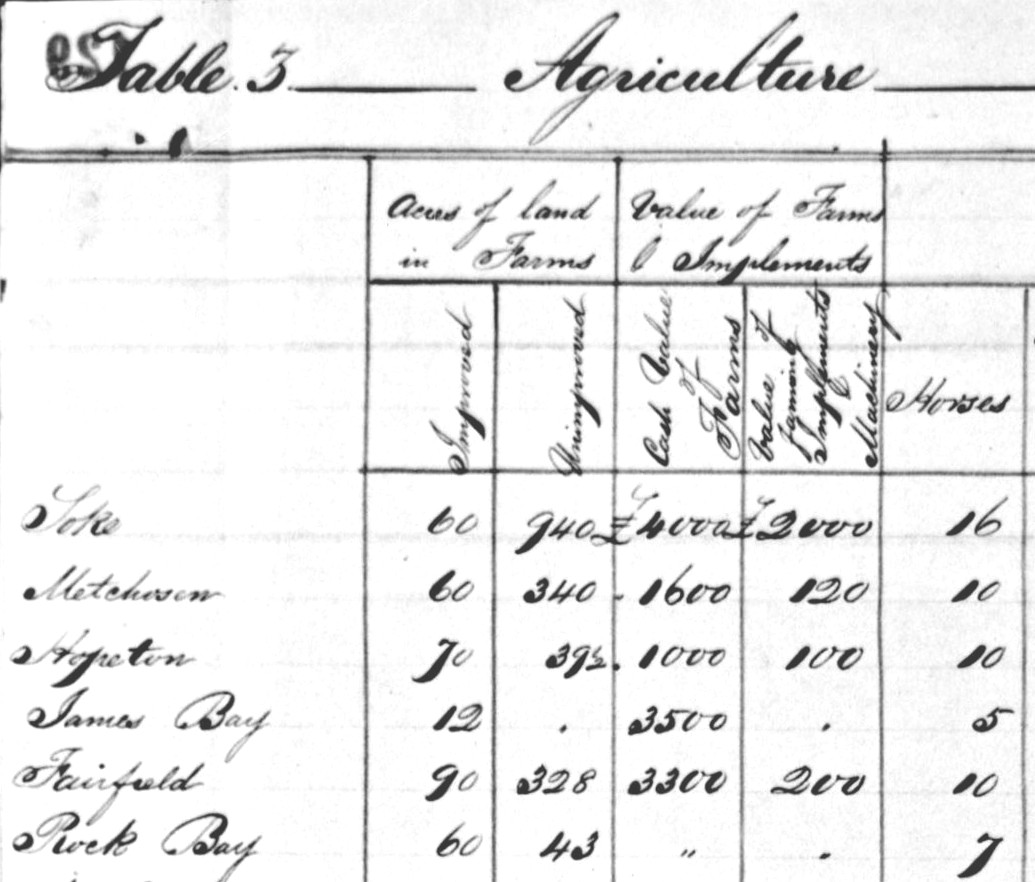 Table 3 Agriculture
Acres of land Value of Farms
in Farms & Implements
Improved Unimproved Cash Value of Farms Value of Farming Implements & Machinery Horses
Soke 60 940 £4000 £2000 16
Metchosen 60 340 1600 120 10
Hopeton 70 392 1000 100 10
James Bay 12 . 3500 . 5
Fairfield 90 328 3300 200 10
Rock Bay 60 43 " . 7